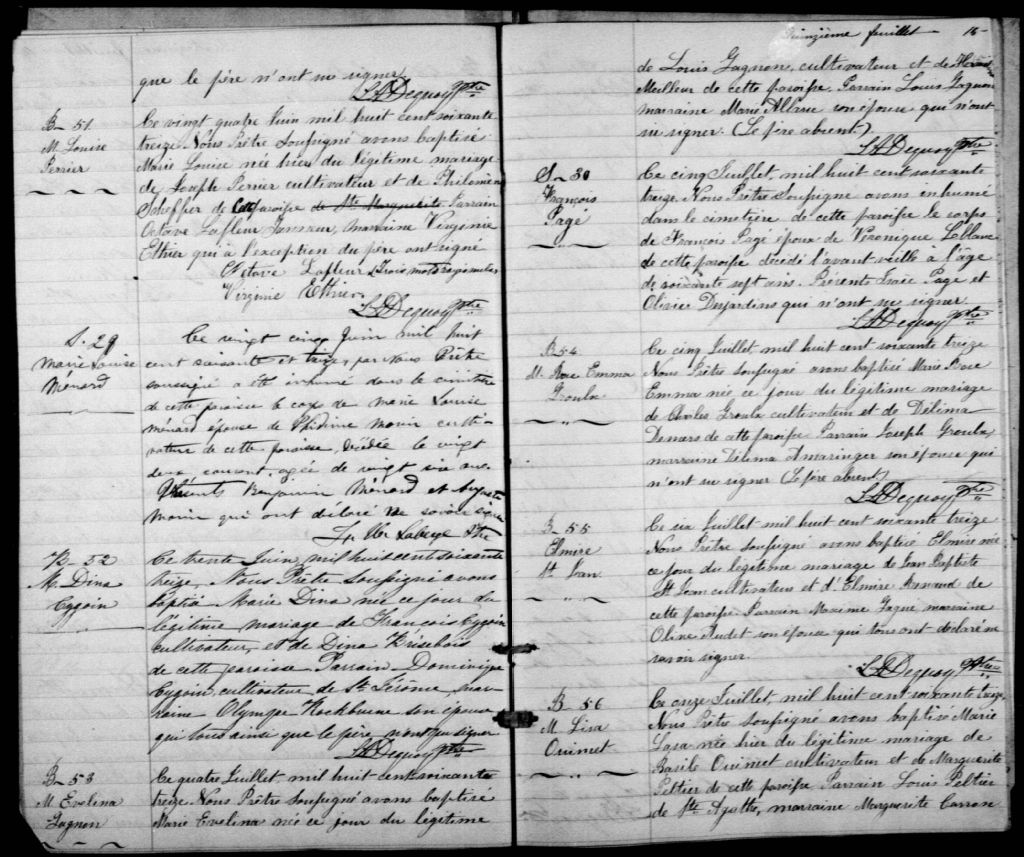 que le père n'ont su signer
L A Dequoy Ptre
B_ 51.
M. Louise
Perrier
Ce vingt quatre Juin mil huit cent soixante
treize Nous Prêtre Soussigné avons baptisé
Marie Louise née hier du légitime mariage
de Joseph Perrier cultivateur et de Philomène
Scheffer de Cette paroisse de Ste Marguerite Parrain
Octave Lafleur marraine Virginie
Ethier qui à l'exception du père ont signé
Octave Lafleur (Trois mots rayés nuls)
Virginie Ethier
L A Dequoy Ptre
S. 29
Marie Louise
Ménard
Ce vingt cinq Juin mil huit
cent soixante et treize, par Nous Prêtre
soussigné a été inhumé dans le cimetière
de cette paroisse le corps de Marie Louise
Ménard épouse de Morin culti-
vateur de cette paroisse, décédée le vingt
deux courant, agée de vingt six ans.
Présents Benjamin Ménard et Auguste
Morin qui ont déclaré ne savoir signer
Labelle Ptre
B. 52
M. Dina
Cyr
Ce trente Juin, mil huit cent soixante
treize, Nous Prêtre soussigné avons
baptisé Marie Dina née ce jour du
légitime mariage de François
cultivateur, et de Dina Brisebois
de cette paroisse Parrain Dominique
cultivateur de St. Jérôme, mar-
raine Olympe Rockburne son épouse
qui tous ainsi que le père n'ont su signer
L A Dequoy Ptre
B_ 53
M. Evelina
Gagnon
Ce quatre Juillet mil huit cent soixante
treize Nous Prêtre Soussigné avons baptisé
Marie Evelina née ce jour du légitime
Quinzième feuillet 15-
de Louis Gagnon, cultivateur et de
Meilleur de cette paroisse. Parrain Louis Gagnon
marraine Marie Allard son épouse qui n'ont
su signer. (Le père absent)
L A Dequoy Ptre
S_ 30
François
Pagé
Ce cinq Juillet, mil huit cent soixante
treize. Nous Prêtre Soussigné avons inhumé
dans le cimetière de cette paroisse le corps
de François Pagé époux de Véronique Leblanc
de cette paroisse décédé l'avant veille à l'âge
de soixante sept ans. Présents Pagé et
Olivier Desjardins qui n'ont su signer.
L A Dequoy Ptre
B_ 54
M. Rose Emma
Groulx
Ce cinq Juillet, mil huit cent soixante treize
Nous Prêtre Soussigné avons baptisé Marie Rose
Emma née ce jour du légitime mariage
de Charles Groulx cultivateur et de Délima
Demers de cette paroisse Parrain Joseph Groulx,
marraine Délima Amaringer son épouse qui
n'ont su signer (Le père absent)
L A Dequoy Ptre
B_ 55
Elmire
St. Jean
Ce six Juillet mil huit cent soixante treize
Nous Prêtre Soussigné avons baptisé Elmire née
ce jour du légitime mariage de Jean Baptiste
St Jean cultivateur et d'Elmire Renaud de
cette paroisse Parrain Maxime Gagné marraine
Oline Audet son épouse qui tous ont déclaré ne
savoir signer.
L A Dequoy Ptre
B_ 56
M. Lisa
Ouimet
Ce onze Juillet, mil huit cent soixante treize,
Nous Prêtre Soussigné avons baptisé Marie
née hier du légitime mariage de
Basile Ouimet cultivateur et de Marguerite
Peltier de cette paroisse Parrain Louis Peltier
de Ste Agathe, marraine Marguerite Carron